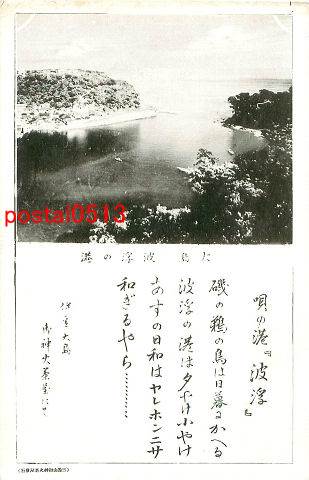 postal0513
大島 波浮の港
唄の港『波浮』
磯の鵜の鳥は日暮るかへる
波浮の港は夕やけ小やけ
あすの日和はヤレホンニサ
和ぎるやら…………
伊豆大島
御神火茶屋にて